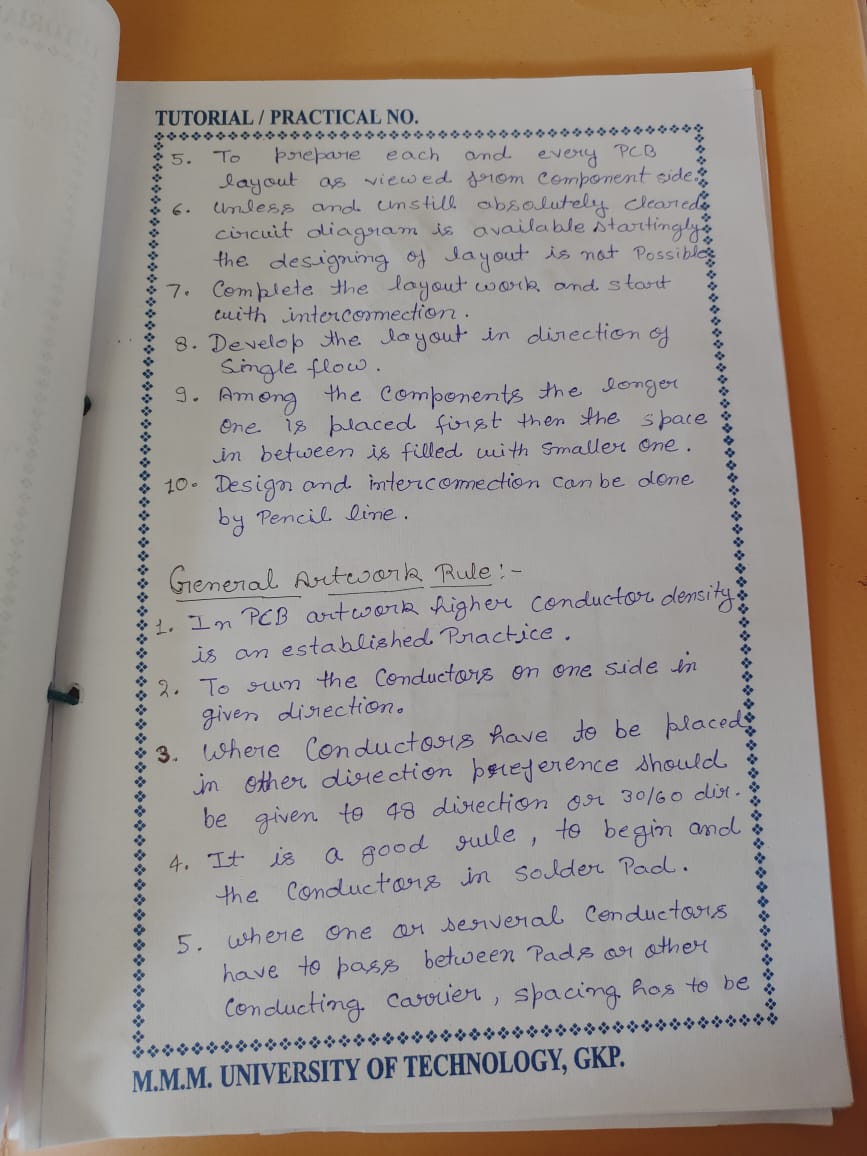 TUTORIAL / PRACTICAL NO.
5. To prepare each and every PCB
layout as viewed from Component side.
6. Unless and unstill absolutely cleared
circuit diagram is available startingly
the designing of layout is not Possible
7. Complete the layout work and start
with interconnection.
8. Develop the layout in direction of
Single flow.
9. Among the Components the longer
one is placed first then the space
in between is filled with smaller one.
10. Design and interconnection can be done
by Pencil line.
General Artwork Rule:-
1. In PCB artwork higher Conductor density
is an established Practice.
2. To run the Conductors on one side in
given direction.
3. Where Conductors have to be placed
in other direction preference should
be given to 48 direction or 30/60 dir.
4. It is a good rule, to begin and
the Conductors in Solder Pad.
5. where one or serveral Conductors
have to pass between Pads or other
Conducting Carrier, spacing has to be
M.M.M. UNIVERSITY OF TECHNOLOGY, GKP.